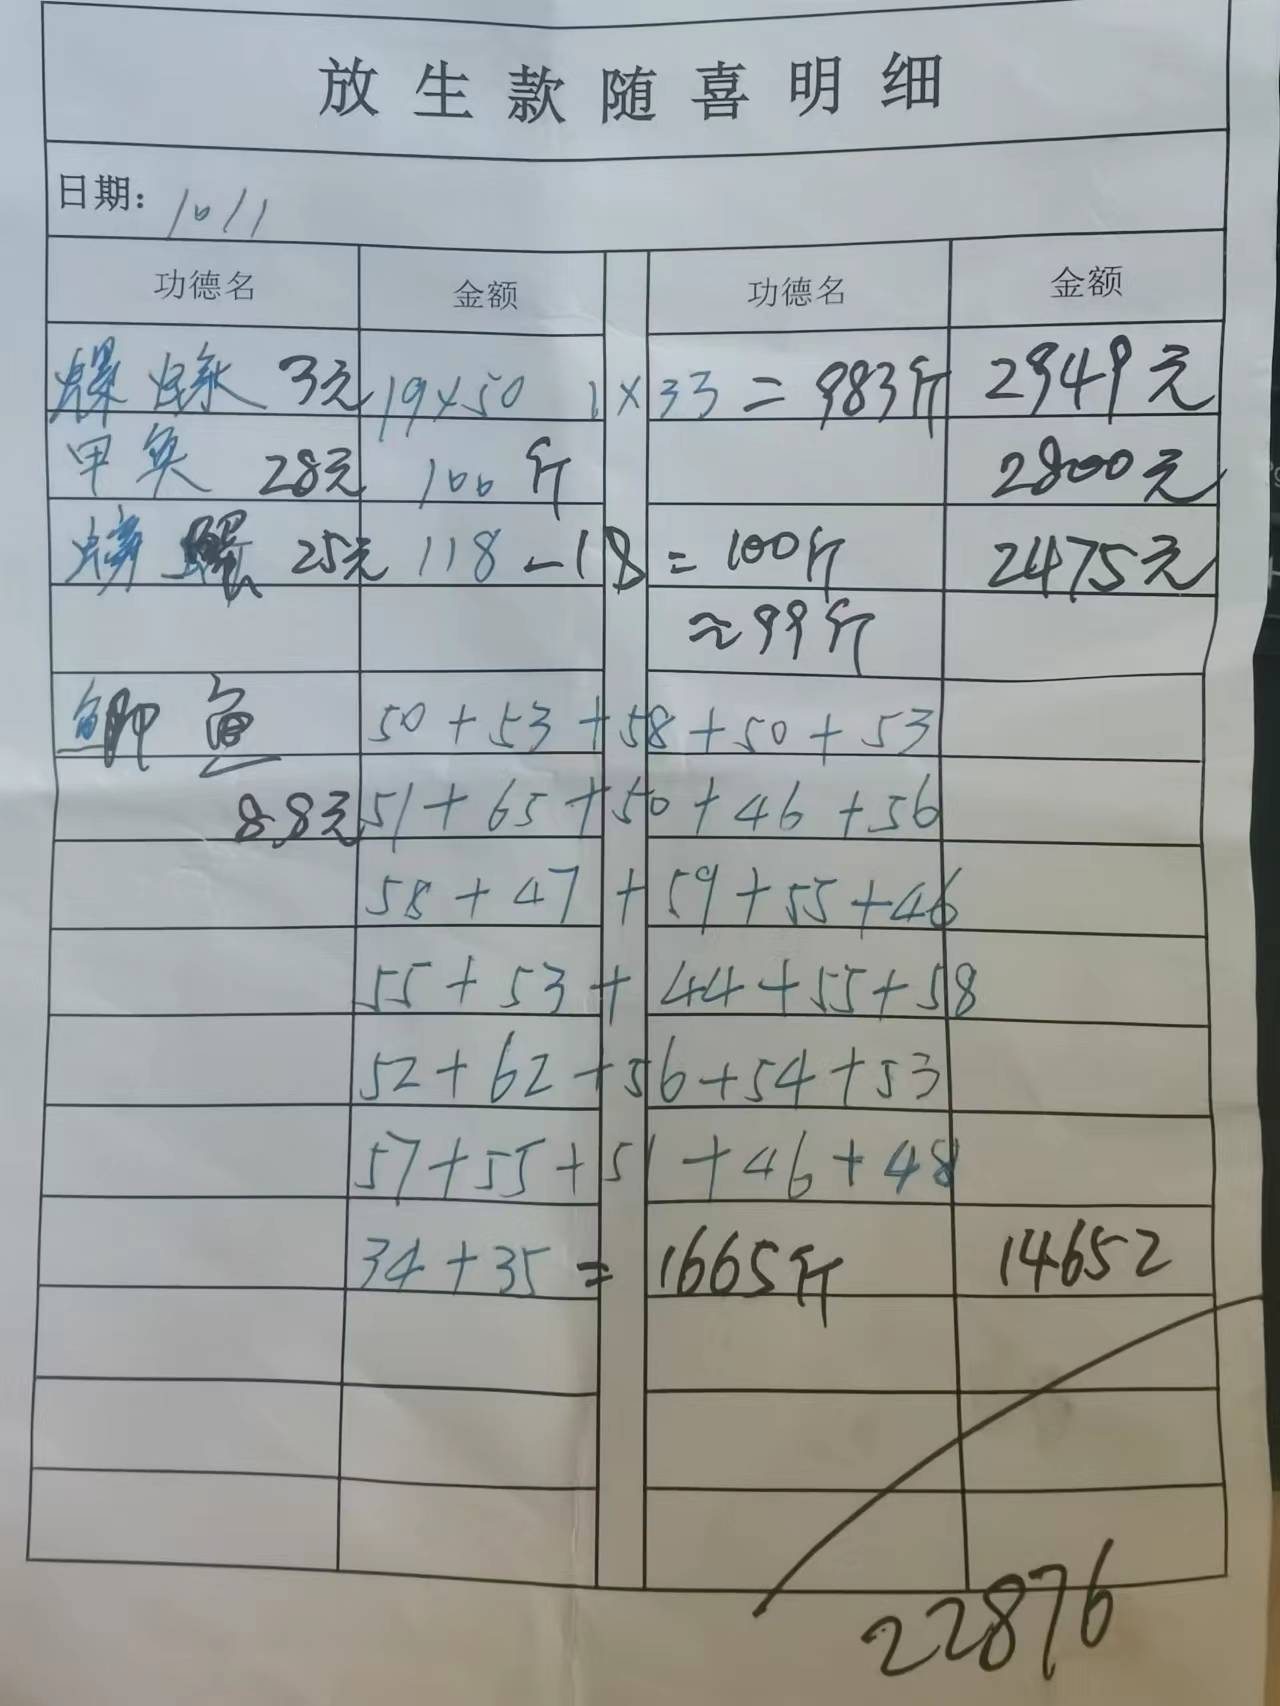 放生款随喜明细
日期: 10/1
功德名 金额 功德名 金额
3元 19×50 1×33=983斤 2949元
甲鱼 28元 100斤 2800元
螃蟹 25元 118-18=100斤 2475元
≈99斤
鲫鱼 50+53+58+50+53
8.8元 51+65+50+46+56
58+47+59+55+46
55+53+44+55+58
52+62+56+54+53
57+55+51+46+48
34+35=1665斤 14652
22876